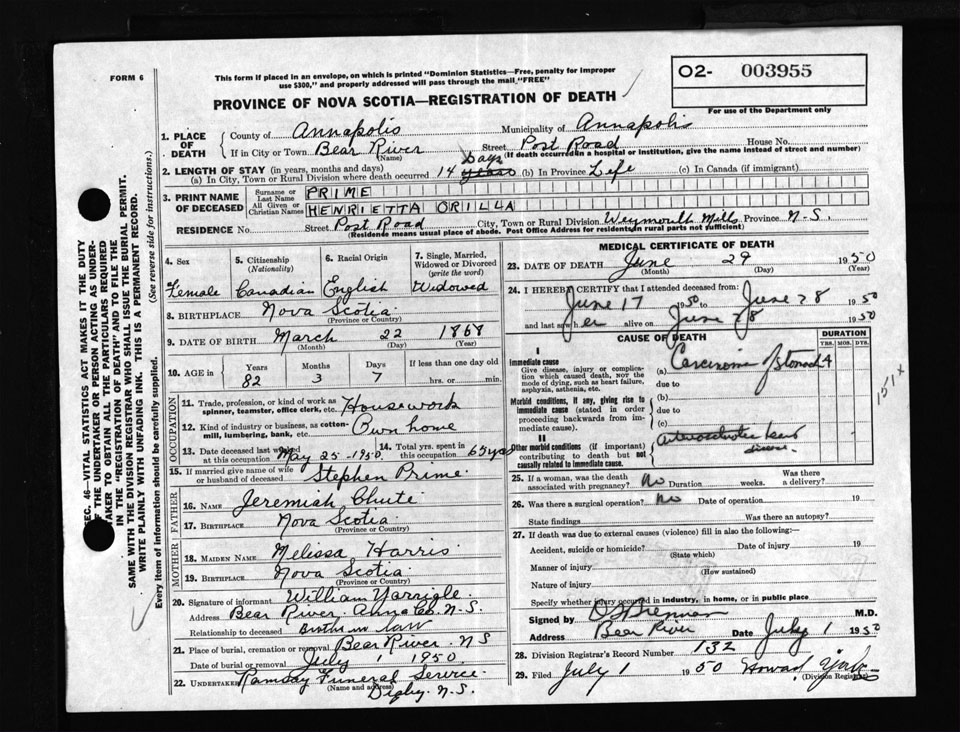 FORM 6
This form if placed in an envelope, on which is printed "Dominion Statistics—Free, penalty for improper
use $300," and properly addressed will pass through the mail "FREE"
PROVINCE OF NOVA SCOTIA—REGISTRATION OF DEATH
O2- 003955
For use of the Department only
1. PLACE OF DEATH
County of Annapolis Municipality of Annapolis
If in City or Town Bear River (Name) Street Post Road House No.
(If death occurred in a hospital or institution, give the name instead of street and number)
2. LENGTH OF STAY (in years, months and days)
(a) In City, Town or Rural Division where death occurred 14 years Days (b) In Province Life (c) In Canada (if immigrant)
3. PRINT NAME OF DECEASED
Surname or Last Name PRIME
All Given or Christian Names HENRIETTA ORILLA
RESIDENCE No. Street Post Road City, Town or Rural Division Weymouth Mills Province N-S.
(Residence means usual place of abode. Post Office Address for residents in rural parts not sufficient)
4. Sex
Female
5. Citizenship (Nationality)
Canadian
6. Racial Origin
English
7. Single, Married, Widowed or Divorced (write the word)
Widowed
8. BIRTHPLACE Nova Scotia
(Province or Country)
9. DATE OF BIRTH March 22 1868
(Month) (Day) (Year)
10. AGE in Years Months Days If less than one day old
82 3 7 hrs. or min.
OCCUPATION
11. Trade, profession, or kind of work as spinner, teamster, office clerk, etc. Housework
12. Kind of industry or business, as cotton-mill, lumbering, bank, etc. Own home
13. Date deceased last worked at this occupation May 25-1950 14. Total yrs. spent in this occupation 65 yrs
15. If married give name of wife or husband of deceased Stephen Prime
FATHER
16. NAME Jeremiah Chute
17. BIRTHPLACE Nova Scotia
(Province or Country)
MOTHER
18. MAIDEN NAME Melissa Harris
19. BIRTHPLACE Nova Scotia
(Province or Country)
20. Signature of informant William Yarrigle
Address Bear River. Anna Co. N-S.
Relationship to deceased Brother in law
21. Place of burial, cremation or removal Bear River. NS
Date of burial or removal July 1 1950
22. UNDERTAKER Ramsay Funeral Service
(Name and address) Digby. N.S.
MEDICAL CERTIFICATE OF DEATH
23. DATE OF DEATH June 29 1950
(Month) (Day) (Year)
24. I HEREBY CERTIFY that I attended deceased from:
June 17 1950 to June 28 1950
and last saw her alive on June 28 1950
CAUSE OF DEATH
DURATION
YRS. MOS. DYS.
I
Immediate cause
Give disease, injury or complication which caused death, NOT the mode of dying, such as heart failure, asphyxia, asthenia, etc.
(a) Carcinoma of Stomach 4
due to
Morbid conditions, if any, giving rise to immediate cause (stated in order proceeding backwards from immediate cause).
(b)
due to
(c)
II
Other morbid conditions (if important) contributing to death but not causally related to immediate cause.
Arteriosclerotic heart disease
151x
25. If a woman, was the death associated with pregnancy? No Duration weeks. Was there a delivery?
26. Was there a surgical operation? No Date of operation 19
State findings Was there an autopsy?
27. If death was due to external causes (violence) fill in also the following:
Accident, suicide or homicide? Date of injury 19
(State which)
Manner of injury
(How sustained)
Nature of injury
Specify whether injury occurred in industry, in home, or in public place
Signed by Brennan M.D.
Address Bear River Date July 1 1950
28. Division Registrar's Record Number 132
29. Filed July 1 1950 Howard
(Division Registrar)
SEC. 46—VITAL STATISTICS ACT MAKES IT THE DUTY
OF THE UNDERTAKER OR PERSON ACTING AS UNDER-
TAKER TO OBTAIN ALL THE PARTICULARS REQUIRED
IN THE "REGISTRATION OF DEATH" AND TO FILE THE
SAME WITH THE DIVISION REGISTRAR WHO SHALL ISSUE THE BURIAL PERMIT.
WRITE PLAINLY WITH UNFADING INK. THIS IS A PERMANENT RECORD.
Every item of information should be carefully supplied. (See reverse side for instructions.)